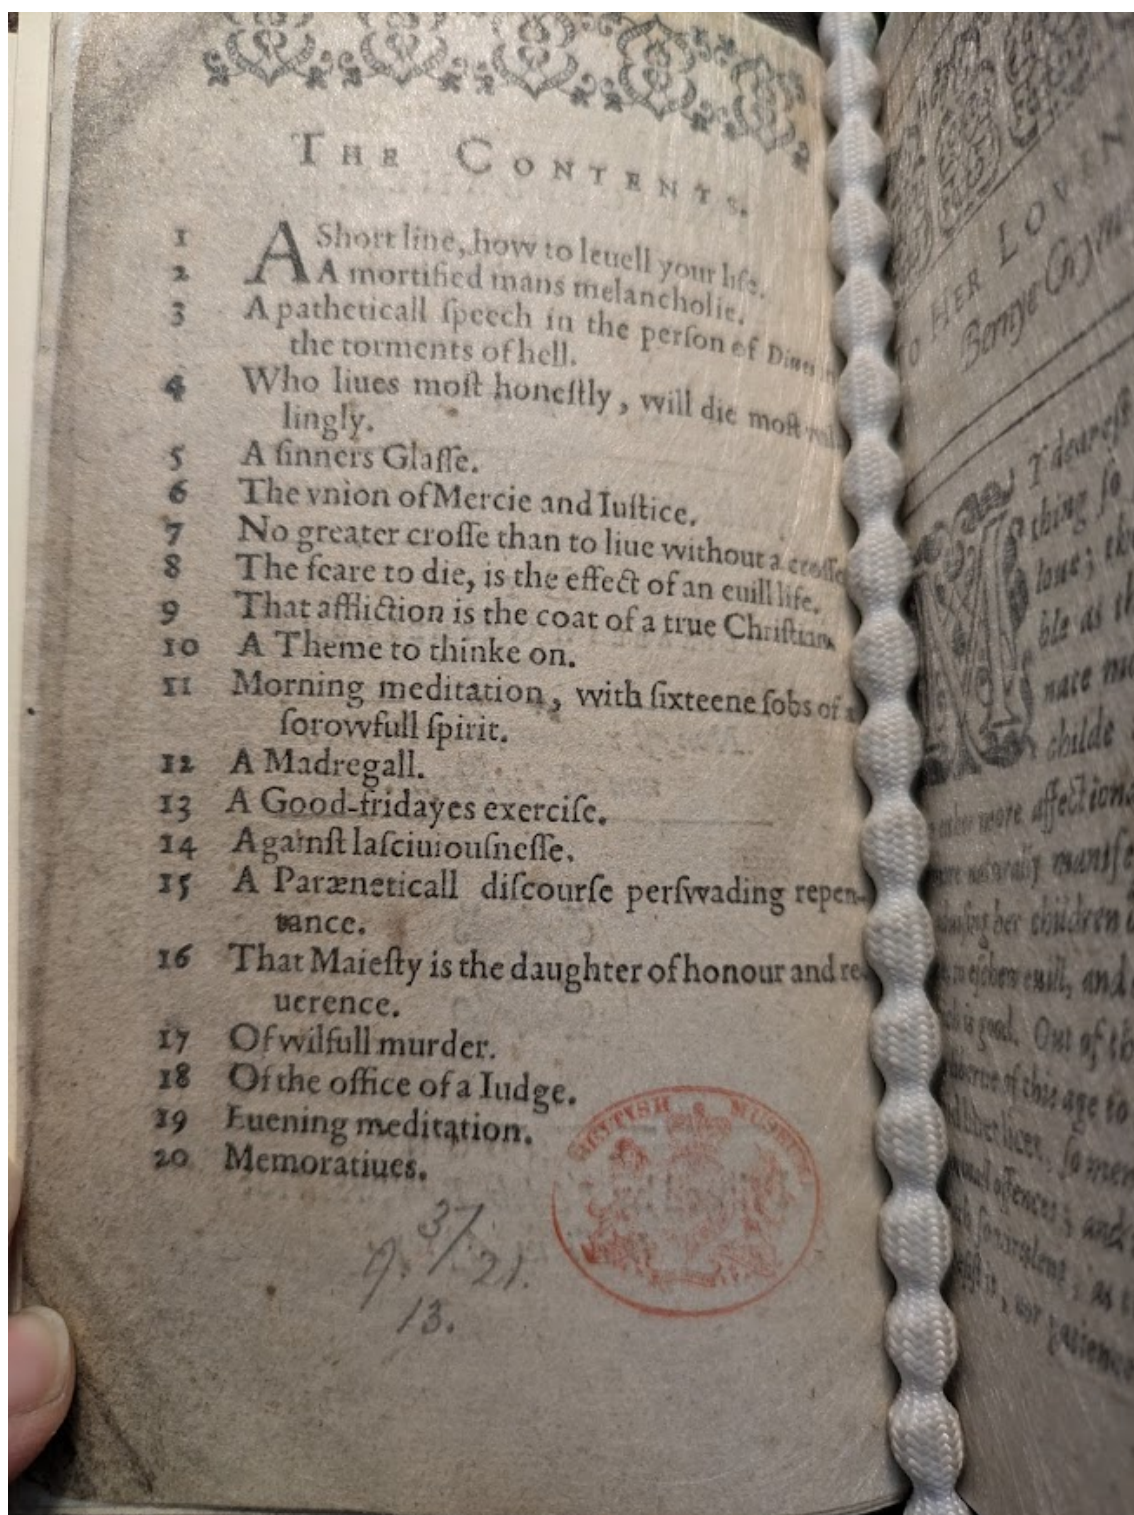 THE CONTENTS.
1 A Short line, how to leuell your life.
2 A mortified mans melancholie.
3 A patheticall ſpeech in the perſon of Diues
the torments of hell.
4 Who liues moſt honeſtly, will die moſt
lingly.
5 A ſinners Glaſſe.
6 The vnion of Mercie and Iuſtice.
7 No greater croſſe than to liue without a croſſe
8 The feare to die, is the effect of an euill life.
9 That affliction is the coat of a true Chriſtian.
10 A Theme to thinke on.
11 Morning meditation, with ſixteene ſobs of a
ſorowfull ſpirit.
12 A Madregall.
13 A Good-fridayes exerciſe.
14 Againſt laſciuiouſneſſe.
15 A Paræneticall diſcourſe perſwading repen-
tance.
16 That Maieſty is the daughter of honour and re
uerence.
17 Of wilfull murder.
18 Of the office of a Iudge.
19 Euening meditation.
20 Memoratiues.
BRITISH MUSEUM
37.
21.
13.
HER LOVEN
Y deareſt
thing ſo
loue;
ble as th
nate
childe
more affection
naturally manifeſ
her children
euill, and
is good. Out of th
of this age to
offences; and